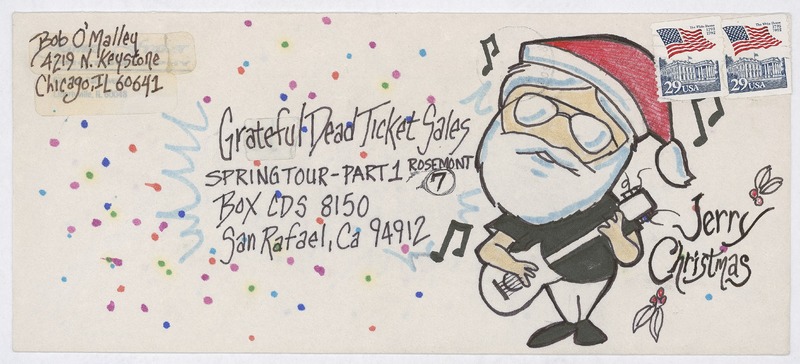 Bob O'Malley
4219 N. Keystone
Chicago, IL 60641
Grateful Dead Ticket Sales
SPRING TOUR - PART 1 ROSEMONT
7
Box CDS 8150
San Rafael, Ca 94912
29 USA
29 USA
Jerry
Christmas